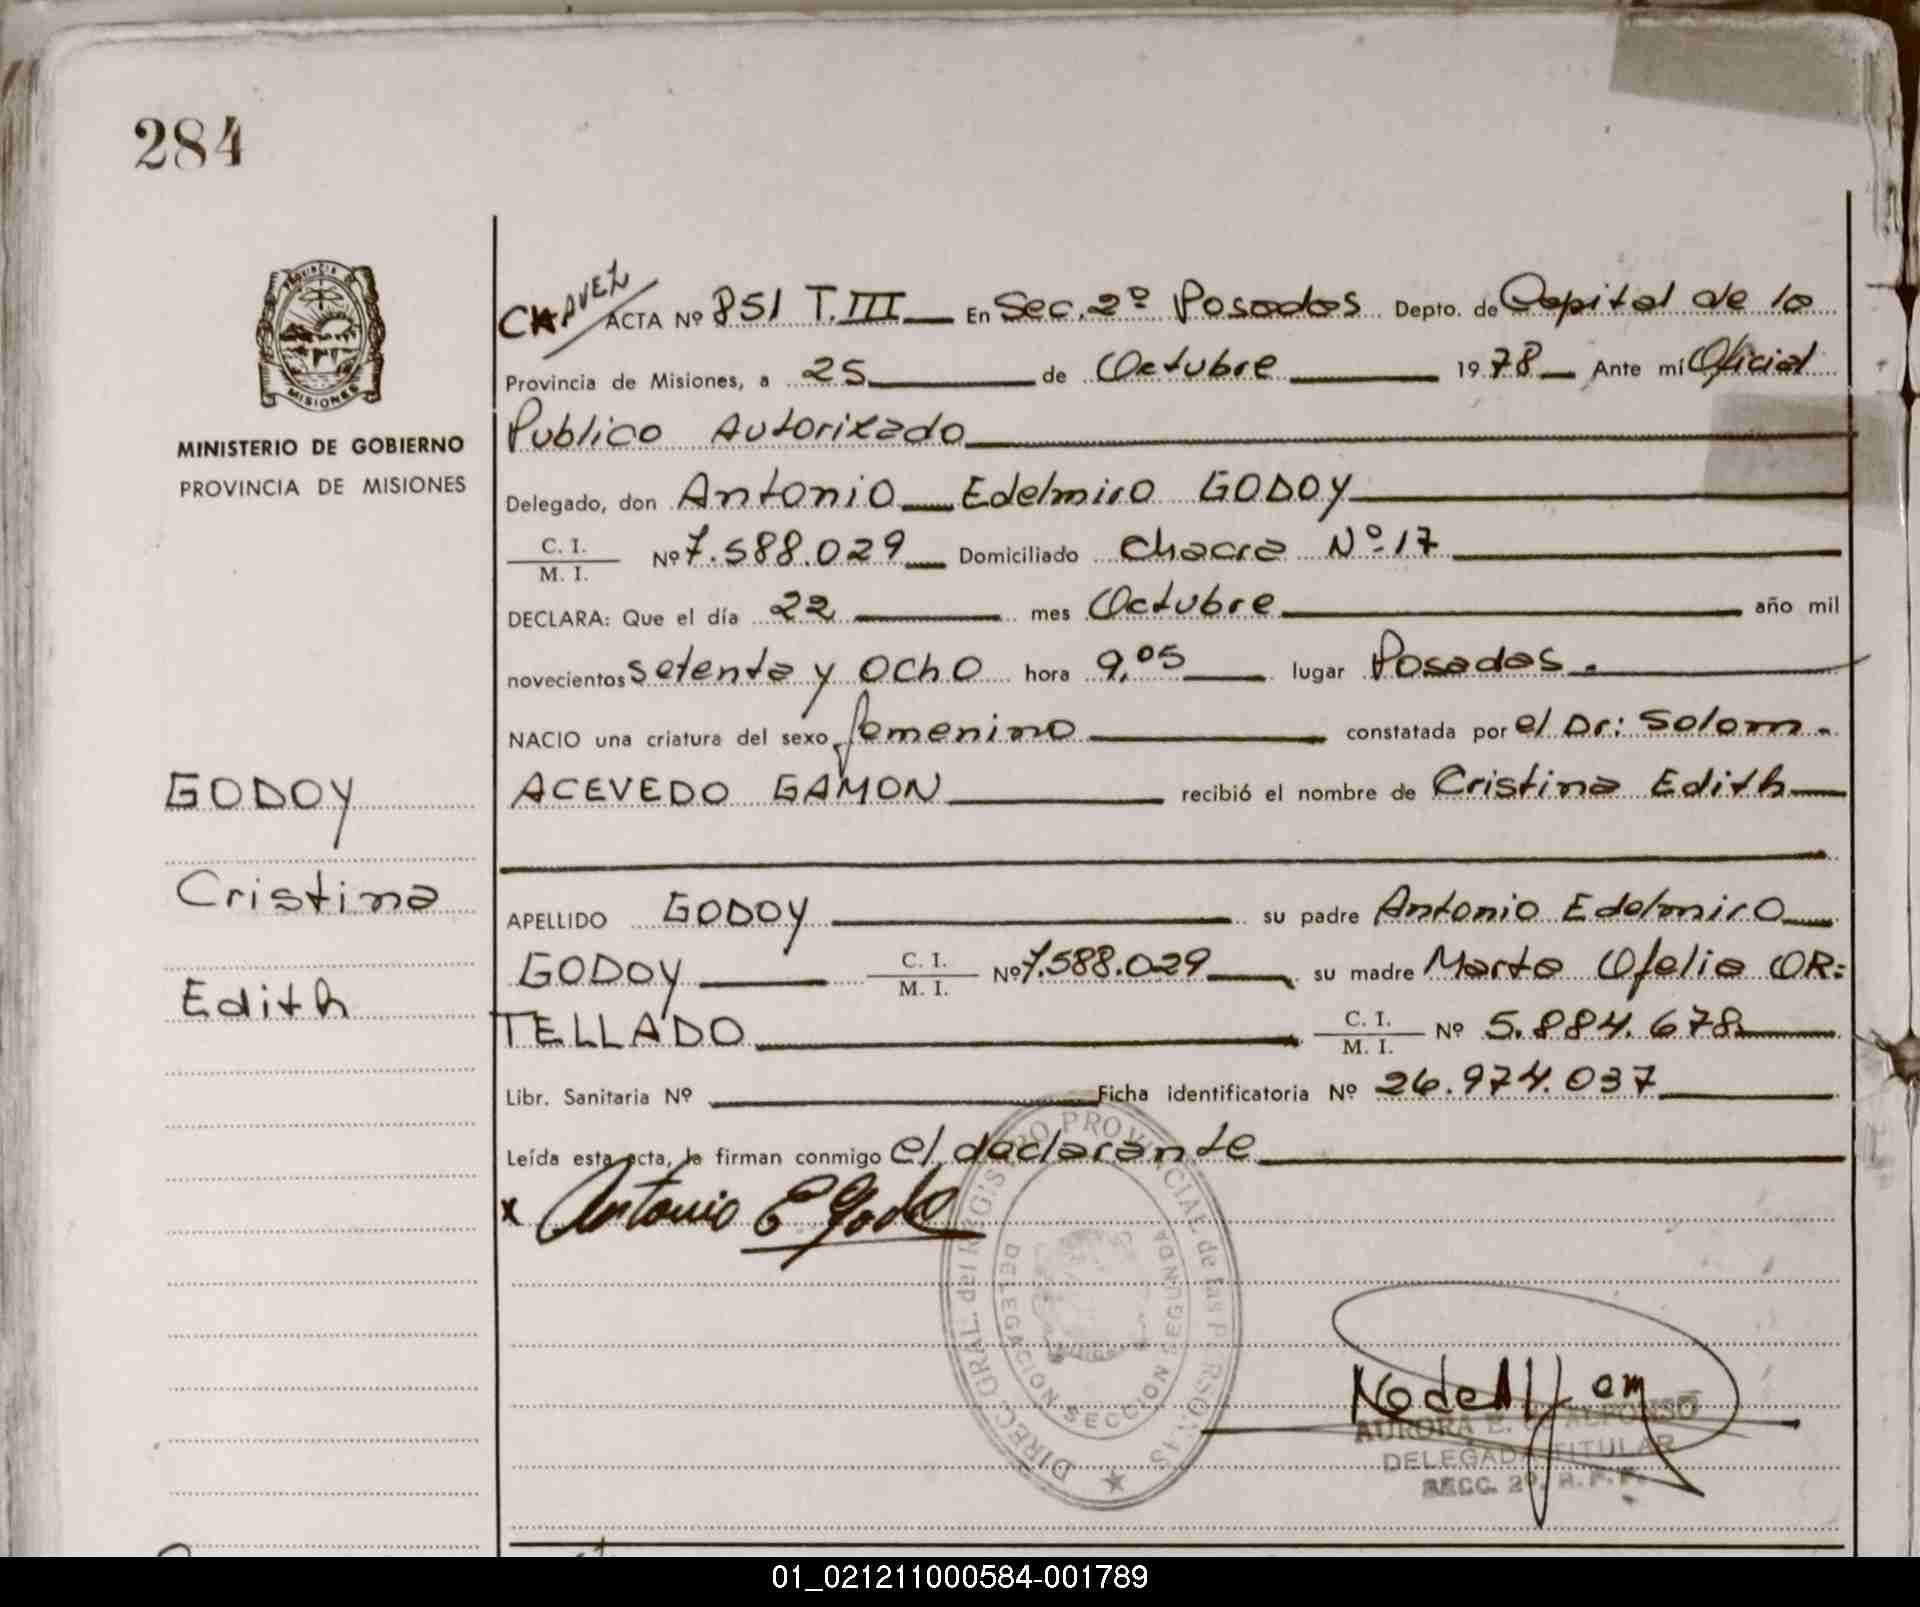 284
PROVINCIA DE
MISIONES
MINISTERIO DE GOBIERNO
PROVINCIA DE MISIONES
GODOY
Cristina
Edith
CHAVEZ
ACTA Nº 851 T.III En Sec. 2º Posadas Depto. de Capital de la
Provincia de Misiones, a 25 de Octubre 1978 Ante mí Oficial
Publico Autorizado
Delegado, don Antonio Edelmiro GODOY
C. I.
M. I. Nº 7.588.029 Domiciliado Chacra Nº 17
DECLARA: Que el día 22 mes Octubre año mil
novecientos setenta y ocho hora 9,05 lugar Posadas.
NACIO una criatura del sexo femenino constatada por el Dr: Solom.
ACEVEDO GAMON recibió el nombre de Cristina Edith
APELLIDO GODOY su padre Antonio Edelmiro
GODOY C. I. M. I. Nº 7.588.029 su madre Marta Ofelia OR=
TELLADO C. I. M. I. Nº 5.884.678
Libr. Sanitaria Nº Ficha identificatoria Nº 26.974.037
Leída esta acta, la firman conmigo el declarante
x Antonio E Godo
DIREC. GRAL. del REGISTRO PROVINCIAL de las PERSONAS
DELEGACION SECCION SEGUNDA
AURORA E. ALFONSO
DELEGADA TITULAR
SECC. 2º, R. P. P.
01_021211000584-001789